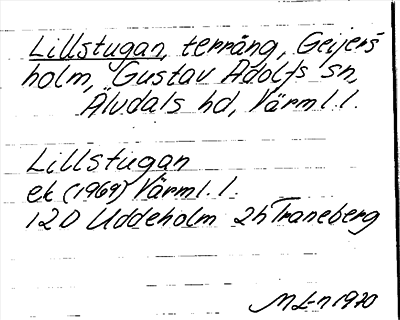 Lillstugan, terräng, Geijers-
holm, Gustav Adolfs sn,
Älvdals hd, Värml. l.
Lillstugan
ek (1969) Värml. l.
12D Uddeholm 2h Traneberg
M L-n 1970